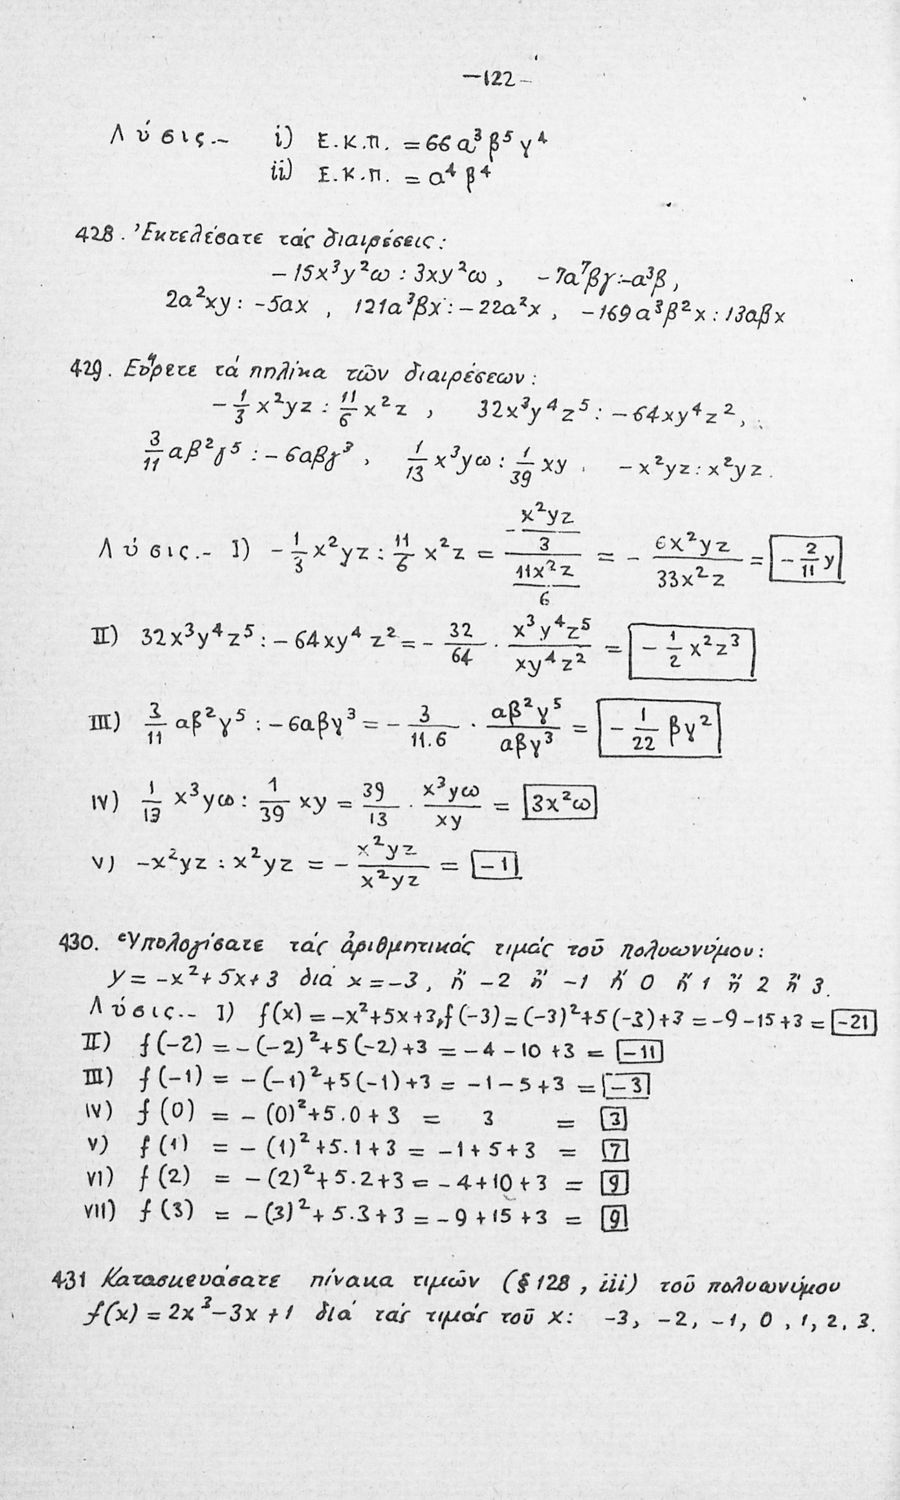 —122—
Λύσις.- i) Ε.Κ.Π. = 66α³β⁵γ⁴
ii) Ε.Κ.Π. = α⁴β⁴
428. Ἐκτελέσατε τάς διαιρέσεις:
-15x³y²ω : 3xy²ω, -7α⁷βγ:-α³β,
2α²xy : -5αx, 121α³βx : -22α²x, -169α³β²x : 13αβx
429. Εὕρετε τά πηλίκα τῶν διαιρέσεων:
-1/3 x²yz : 11/6 x²z, 32x³y⁴z⁵ : -64xy⁴z²,
3/11 αβ²γ⁵ : -6αβγ³, 1/13 x³yω : 1/39 xy, -x²yz : x²yz.
Λύσις.- I) -1/3 x²yz : 11/6 x²z = -(x²yz/3)/(11x²z/6) = -6x²yz/33x²z = -2/11 y
II) 32x³y⁴z⁵ : -64xy⁴z² = -32/64 · x³y⁴z⁵/xy⁴z² = -1/2 x²z³
III) 3/11 αβ²γ⁵ : -6αβγ³ = -3/11.6 · αβ²γ⁵/αβγ³ = -1/22 βγ²
IV) 1/13 x³yω : 1/39 xy = 39/13 · x³yω/xy = 3x²ω
V) -x²yz : x²yz = -x²yz/x²yz = -1
430. Ὑπολογίσατε τάς ἀριθμητικάς τιμάς τοῦ πολυωνύμου:
y = -x²+5x+3 διά x = -3, ἤ -2 ἤ -1 ἤ 0 ἤ 1 ἤ 2 ἤ 3.
Λύσις.- I) f(x) = -x²+5x+3, f(-3) = (-3)²+5(-3)+3 = -9-15+3 = -21
II) f(-2) = -(-2)²+5(-2)+3 = -4-10+3 = -11
III) f(-1) = -(-1)²+5(-1)+3 = -1-5+3 = -3
IV) f(0) = -(0)²+5.0+3 = 3 = 3
V) f(1) = -(1)²+5.1+3 = -1+5+3 = 7
VI) f(2) = -(2)²+5.2+3 = -4+10+3 = 9
VII) f(3) = -(3)²+5.3+3 = -9+15+3 = 9
431 Κατασκευάσατε πίνακα τιμῶν (§128, iii) τοῦ πολυωνύμου
f(x) = 2x³-3x+1 διά τάς τιμάς τοῦ x: -3, -2, -1, 0, 1, 2, 3.